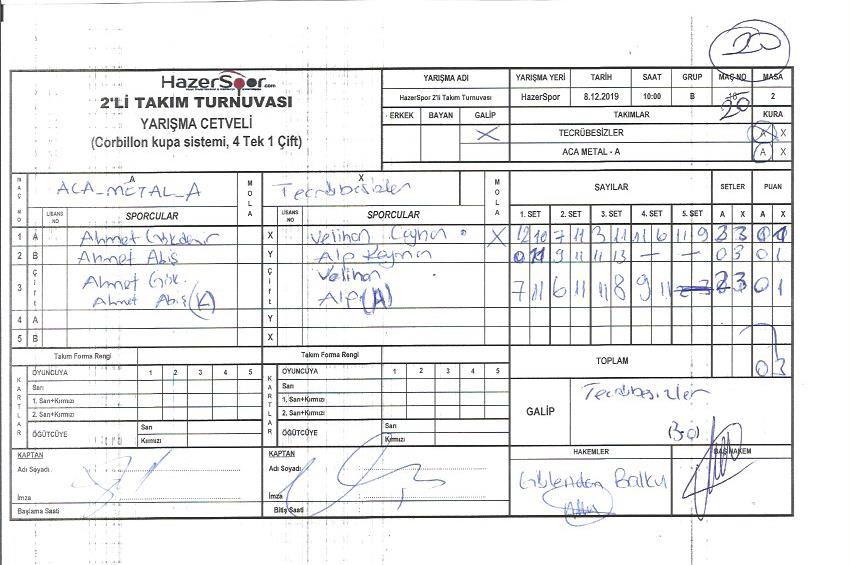 20
HazerSpor.com
2'Lİ TAKIM TURNUVASI
YARIŞMA CETVELİ
(Corbillon kupa sistemi, 4 Tek 1 Çift)
YARIŞMA ADI YARIŞMA YERİ TARİH SAAT GRUP MAÇ NO MASA
HazerSpor 2'li Takım Turnuvası HazerSpor 8.12.2019 10:00 B 20 2
ERKEK BAYAN GALİP TAKIMLAR KURA
X TECRÜBESİZLER A X
ACA METAL - A A X
MAÇ NO A MOLA X MOLA SAYILAR SETLER PUAN
ACA_METAL_A Tecrübesizler
LİSANS NO SPORCULAR LİSANS NO SPORCULAR 1. SET 2. SET 3. SET 4. SET 5. SET A X A X
1 A Ahmet X Velihan X 12 10 7 11 13 11 11 6 11 9 3 0 1
2 B Ahmet Abiş Y Alp 0 11 9 11 11 13 — — 0 3 0 1
3 Çift Ahmet Gök Çift Velihan
Ahmet Abiş (A) Alp (A) 7 11 6 11 11 8 9 11 3 0 1
4 A Y
5 B X
Takım Forma Rengi Takım Forma Rengi TOPLAM 0 3
KARTLAR OYUNCUYA 1 2 3 4 5 KARTLAR OYUNCUYA 1 2 3 4 5
Sarı Sarı
1. Sarı+Kırmızı 1. Sarı+Kırmızı
2. Sarı+Kırmızı 2. Sarı+Kırmızı
ÖĞÜTCÜYE Sarı ÖĞÜTCÜYE Sarı
Kırmızı Kırmızı
GALİP Tecrübesizler
(3-0)
KAPTAN KAPTAN HAKEMLER BAŞHAKEM
Adı Soyadı Adı Soyadı
İmza İmza
Başlama Saati Bitiş Saati